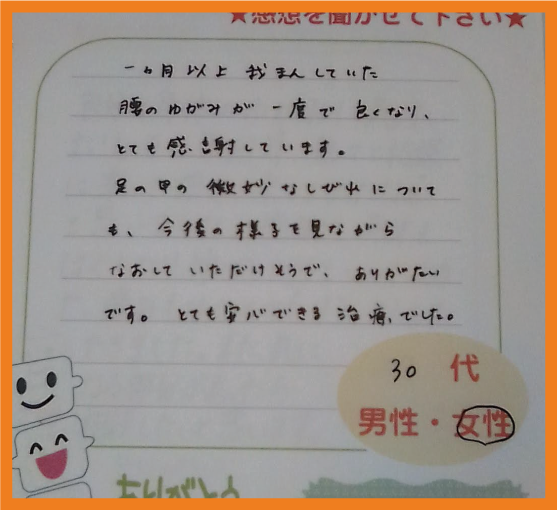 ★感想を聞かせて下さい★
一ヵ月以上我まんしていた
腰のゆがみが一度で良くなり、
とても感謝しています。
足の甲の微妙なしびれについて
も、今後の様子を見ながら
なおしていただけそうで、ありがたい
です。とても安心できる治療でした。
30代
男性・女性
ありがとう